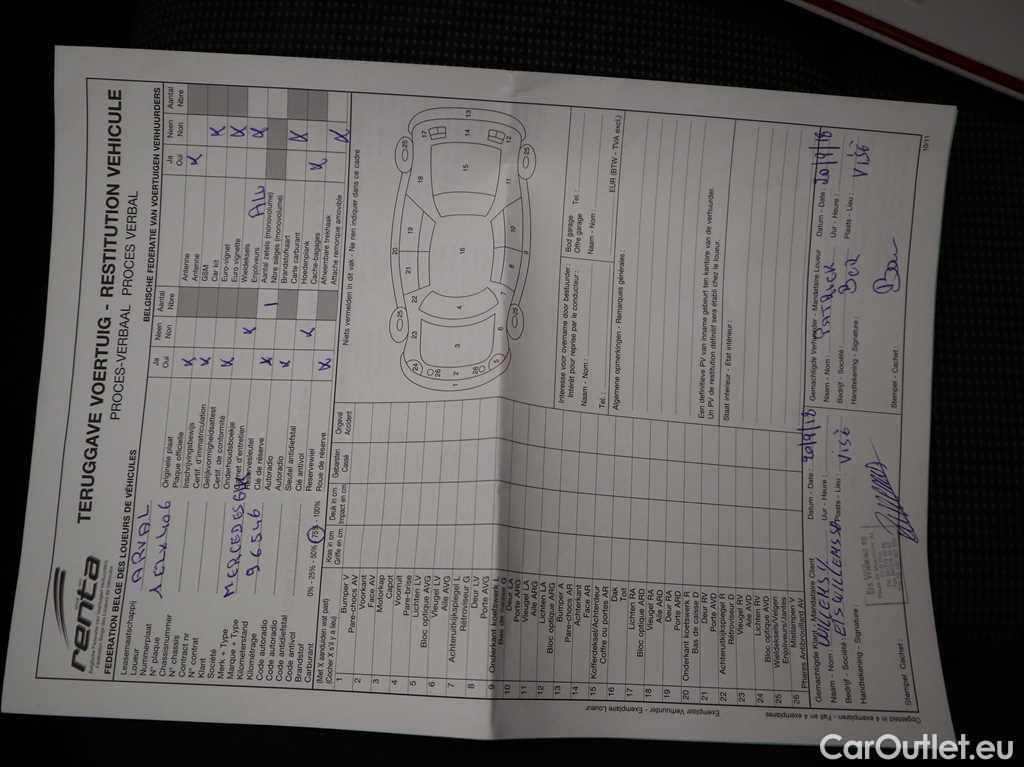 renta
TERUGGAVE VOERTUIG - RESTITUTION VEHICULE
PROCES-VERBAAL PROCES VERBAL
FEDERATION BELGE DES LOUEURS DE VÉHICULES
BELGISCHE FEDERATIE VAN VOERTUIGEN VERHUURDERS
Leasemaatschappij
Loueur
ARVAL
Nummerplaat
N° plaque
Chassisnummer
N° chassis
Contract nr
N° contrat
Klant
Société
Merk + Type
Marque + Type
MERCEDES
Kilometerstand
Kilométrage
96546
Code autoradio
Code autoradio
Code antidiefstal
Code antivol
Brandstof
Carburant
0% - 25% - 50% - 75% - 100%
Ja Neen Aantal
Oui Non Nbre
Originele plaat
Plaque officielle
Inschrijvingsbewijs
Certif. d'immatriculation
Gelijkvormigheidsattest
Certif. de conformité
Onderhoudsboekje
Carnet d'entretien
Reservesleutel
Clé de réserve
Autoradio
Autoradio
Sleutel antidiefstal
Clé antivol
Reservewiel
Roue de réserve
Ja Neen Aantal
Oui Non Nbre
Antenne
Antenne
GSM
Car kit
Euro-vignet
Euro vignette
Wieldeksels
Enjoliveurs
ALU
Aantal zetels (monovolume)
Nbre sièges (monovolume)
Brandstofkaart
Carte carburant
Hoedenplank
Cache-bagages
Afneembare trekhaak
Attache remorque amovible
(Met X aanduiden wat past)
(Cocher X s'il y a lieu)
Kras in cm
Griffe en cm
Deuk in cm
Impact en cm
Gebarsten
Cassé
Ongeval
Accident
Niets vermelden in dit vak - Ne rien indiquer dans ce cadre
1 Bumper V
Pare-chocs AV
2 Voorkant
Face AV
3 Motorkap
Capot
4 Voorruit
Pare-brise
5 Lichten LV
Bloc optique AVG
6 Vleugel LV
Aile AVG
7 Achteruitkijkspiegel L
Rétroviseur G
8 Deur LV
Porte AVG
9 Onderkant koetswerk L
Bas de caisse G
10 Deur LA
Porte ARG
11 Vleugel LA
Aile ARG
12 Lichten LA
Bloc optique ARG
13 Bumper A
Pare-chocs AR
14 Achterkant
Face AR
15 Kofferdeksel/Achterdeur
Coffre ou portes AR
16 Dak
Toit
17 Lichten RA
Bloc optique ARD
18 Vleugel RA
Aile ARD
19 Deur RA
Porte ARD
20 Onderkant koetswerk R
Bas de caisse D
21 Deur RV
Porte AVD
22 Achteruitkijkspiegel R
Rétroviseur D
23 Vleugel RV
Aile AVD
24 Lichten RV
Bloc optique AVD
25 Wieldeksels/Velgen
Enjoliveurs/Jantes
26 Mistlampen V
Phares Antibrouillard AV
Interesse voor overname door bestuurder :
Intérêt pour reprise par le conducteur :
Naam - Nom :
Tel. :
Bod garage
Offre garage :
Tel :
Naam - Nom :
Algemene opmerkingen - Remarques générales :
EUR (BTW - TVA excl.)
Een definitieve PV van inname gebeurt ten kantore van de verhuurder.
Un PV de restitution définitif sera établi chez le loueur.
Staat interieur - Etat intérieur :
Gemachtigde Klant - Mandataire Client
Datum - Date : 20/4/18
Naam - Nom :
Uur - Heure :
Bedrijf - Société :
Plaats - Lieu : Visé
Handtekening - Signature :
Stempel - Cachet :
Gemachtigde Verhuurder - Mandataire Loueur
Datum - Date : 20/4/18
Naam - Nom : PATRICK
Uur - Heure :
Bedrijf - Société : BCA
Plaats - Lieu : Visé
Handtekening - Signature :
Stempel - Cachet :
Opgesteld in 4 exemplaren - Fait en 4 exemplaires
Exemplaar Verhuurder - Exemplaire Loueur
10/11
CarOutlet.eu